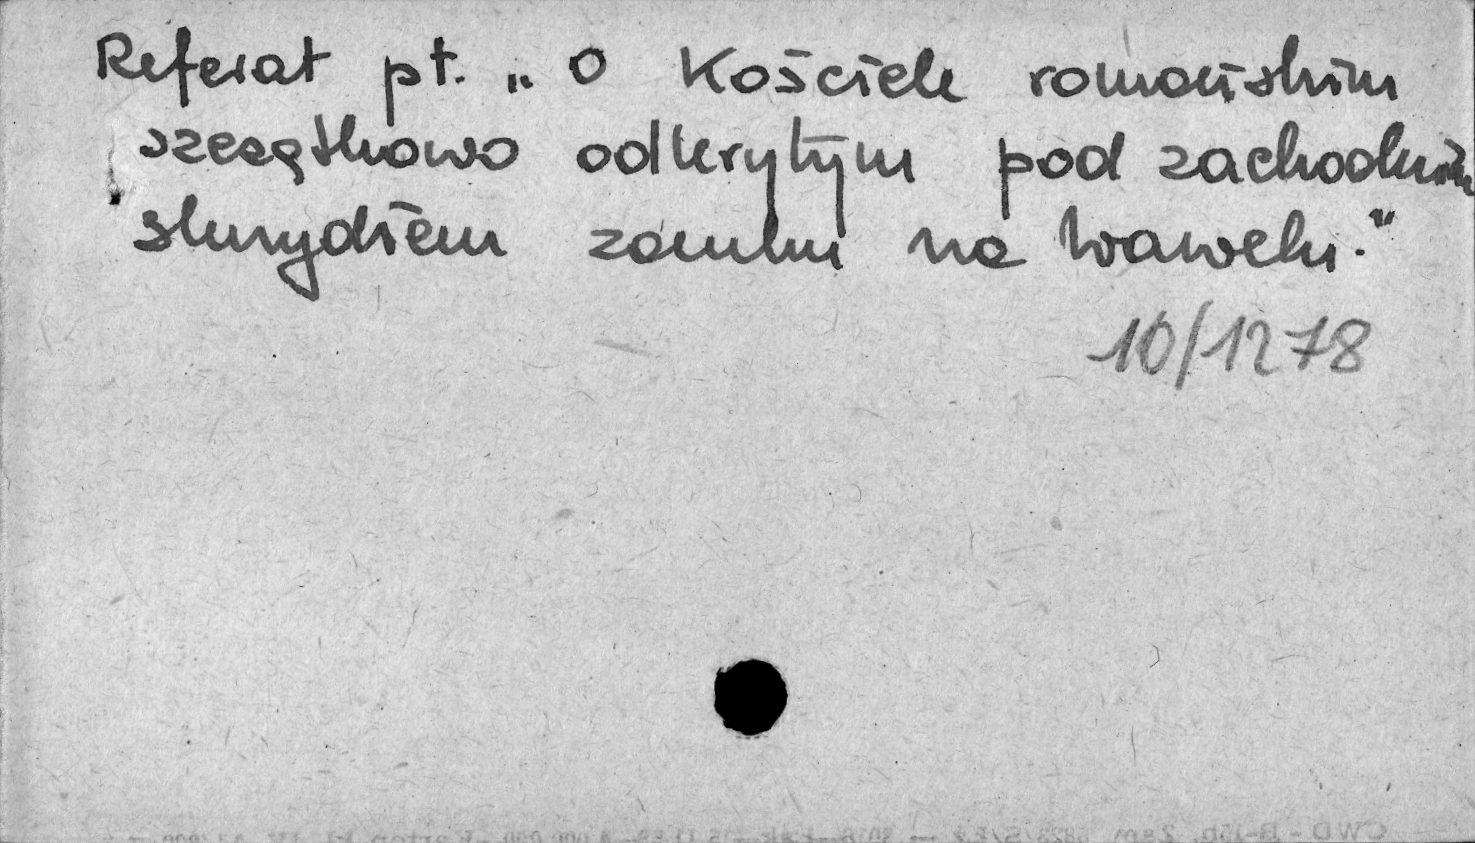 Referat pt. „O Kościele romańskim
szczątkowo odkrytym pod zachodnim
skrzydłem zamku na Wawelu.”
10/1278